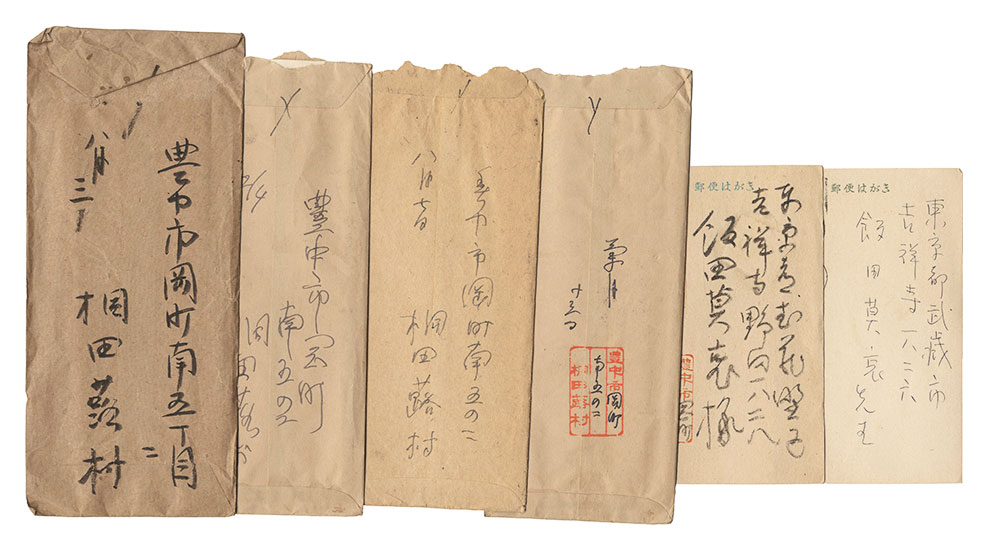 豊中市岡町南五丁目
二
八月三日
桐田蕗村
豊中市岡町
南五の二
桐田蕗村
豊中市岡町南五の二
八月七日
桐田蕗村
十三日
豊中市岡町
南五の二
桐田蕗村
郵便はがき
東京都武蔵野市
吉祥寺野田一八二六
飯田莫哀様
豊中市岡町
郵便はがき
東京都武蔵市
吉祥寺一八二六
飯田莫哀先生